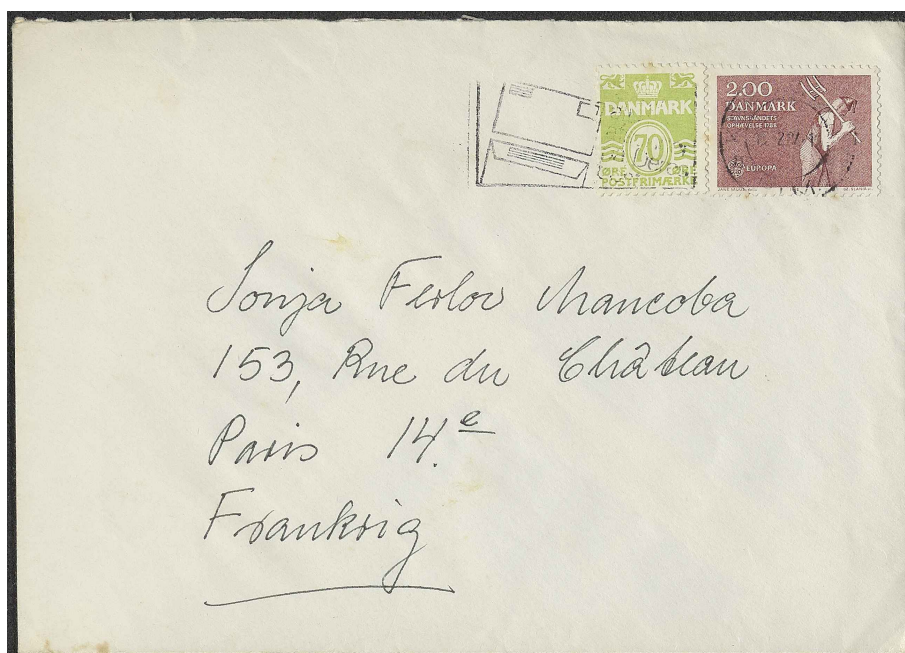 DANMARK
70
ØRE ØRE
POSTFRIMÆRKE
2.00
DANMARK
STAVNSBÅNDETS
OPHÆVELSE 1788
EUROPA
Sonja Ferlov Mancoba
153, Rue du Château
Paris 14.e
Frankrig